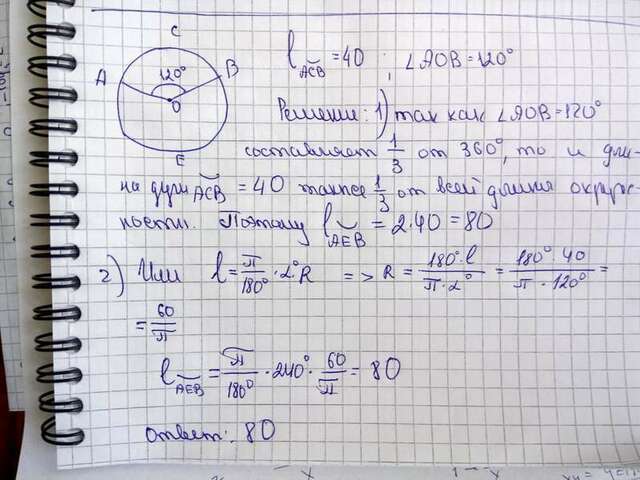 C
A
B
120°
O
E
l ACB = 40 ; ∠AOB = 120°
Решение: 1) так как ∠AOB = 120°
составляет 1/3 от 360°, то и дли-
на дуги ACB = 40 также 1/3 от всей длины окруж-
ности. Поэтому l AEB = 2·40 = 80
2) Или l = π/180° · α° R => R = 180°·l / π·α° = 180°·40 / π·120° =
= 60/π
l AEB = π/180° · 240° · 60/π = 80
ответ: 80